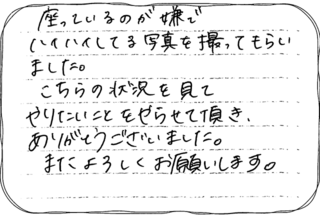 座っているのが嫌で
ハイハイしてる写真を撮ってもらい
ました。
こちらの状況を見て
やりたいことをやらせて頂き、
ありがとうございました。
またよろしくお願いします。